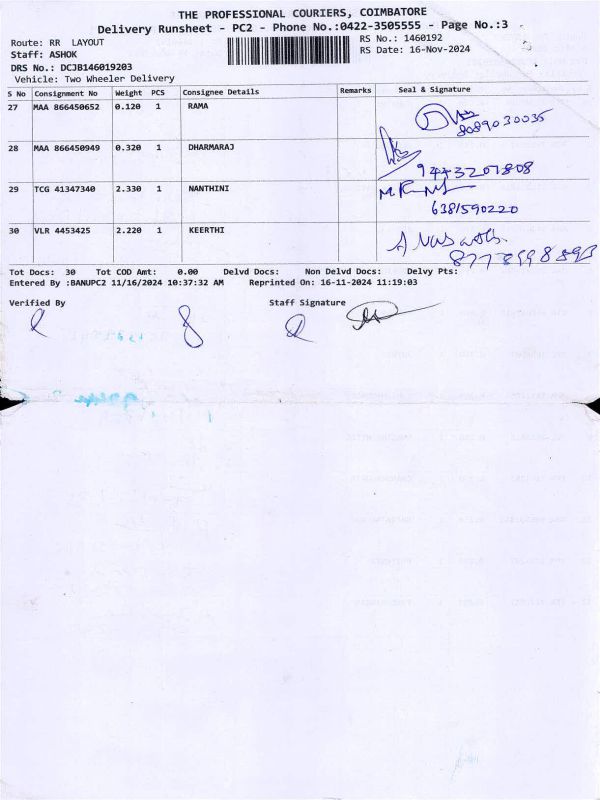 THE PROFESSIONAL COURIERS, COIMBATORE
Delivery Runsheet - PC2 - Phone No.:0422-3505555 - Page No.:3
Route: RR LAYOUT
Staff: ASHOK
DRS No.: DCJB146019203
Vehicle: Two Wheeler Delivery
RS No.: 1460192
RS Date: 16-Nov-2024
S No Consignment No Weight PCS Consignee Details Remarks Seal & Signature
27 MAA 866450652 0.120 1 RAMA
8089030035
28 MAA 866450949 0.320 1 DHARMARAJ
9443201808
29 TCG 41347340 2.330 1 NANTHINI
6381590220
30 VLR 4453425 2.220 1 KEERTHI
Tot Docs: 30 Tot COD Amt: 0.00 Delvd Docs: Non Delvd Docs: Delvy Pts:
Entered By :BANUPC2 11/16/2024 10:37:32 AM Reprinted On: 16-11-2024 11:19:03
Verified By Staff Signature